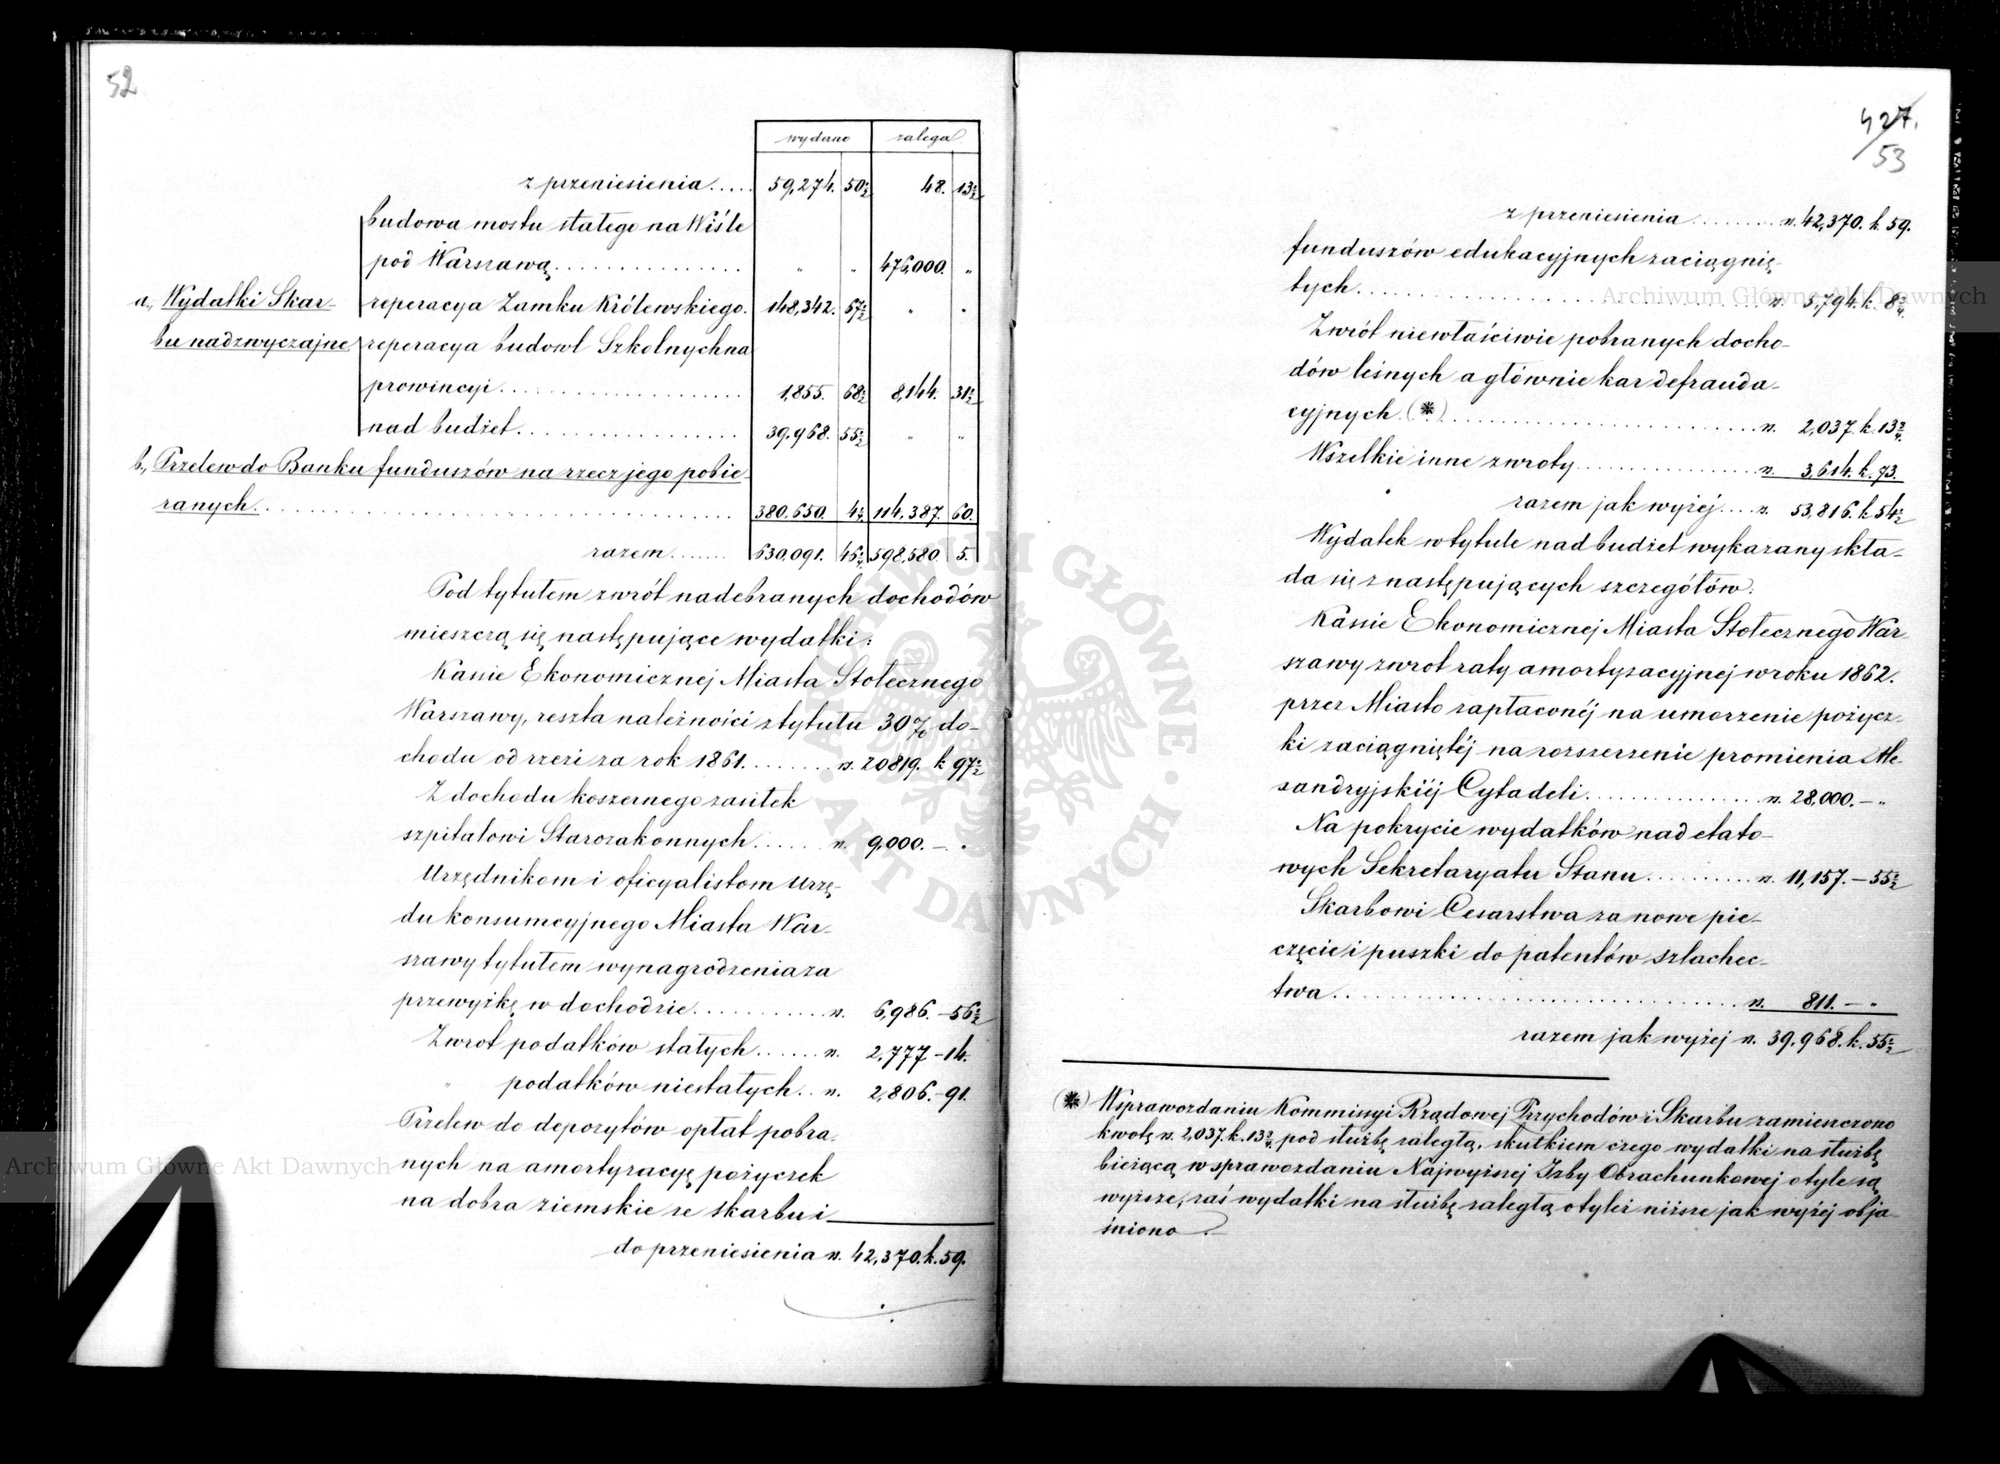 52
wydano zalega
z przeniesienia..... 59,274. 50½ 48. 13½
budowa mostu stałego na Wiśle
pod Warszawą................ " " 476,000. "
a., Wydatki Skar- reperacya Zamku Królewskiego. 148,342. 67½ " "
bu nadzwyczajne reperacya budowl Szkolnych na
prowincyi...................... 1,855. 68½ 8,144. 31½
nad budżet.................. 39,968. 55½ " "
b., Przelew do Banku funduszów na rzecz jego pobie-
ranych................................ 380,650. 114,387. 60.
razem....... 630,091. 598,580. 5.
Pod tytułem zwrót nadebranych dochodów
mieszczą się następujące wydatki:
Kassie Ekonomicznej Miasta Stołecznego
Warszawy, reszta należności z tytułu 30% do-
chodu od rzezi za rok 1861........ rs. 20819. k 97½
Z dochodu koszernego zasiłek
szpitalowi Starozakonnych....... rs. 9,000. — "
Urzędnikom i oficyalistom Urzę-
du konsumcyjnego Miasta War-
szawy tytułem wynagrodzenia za
przewyżkę w dochodzie............ rs. 6,986. — 56½
Zwrot podatków stałych....... rs. 2,777 — 14.
" podatków niestałych... rs. 2,806. — 91.
Przelew do depozytów opłat pobra-
nych na amortyzacyę pożyczek
na dobra ziemskie ze skarbu i
do przeniesienia rs. 42,370. k. 59.
427.
53
z przeniesienia......... rs. 42,370. k. 59.
funduszów edukacyjnych zaciągnię-
tych............................ rs. 5,794. k. 8¾.
Zwrót niewłaściwie pobranych docho-
dów leśnych a głównie kar defrauda-
cyjnych (*)............................ rs. 2,037. k. 13¾.
Wszelkie inne zwroty................ rs. 3,614. k. 73.
razem jak wyżej.... rs. 53,816. k 54½
Wydatek w tytule nad budżet wykazany skła-
da się z następujących szczegółów:
Kassie Ekonomicznej Miasta Stołecznego War-
szawy zwrot raty amortyzacyjnej w roku 1862.
przez Miasto zapłaconéj na umorzenie pożycz-
ki zaciągniętéj na rozszerzenie promienia Ale-
xandryjskiéj Cytadeli................ rs. 28,000. — "
Na pokrycie wydatków nad etato-
wych Sekretaryatu Stanu.......... rs. 11,157. — 55½
Skarbowi Cesarstwa za nowe pie-
częcie i puszki do patentów szlachec-
twa................................ rs. 811. — "
razem jak wyżej rs. 39,968. k. 55½
(*) W sprawozdaniu Kommissyi Rządowej Przychodów i Skarbu zamieszczono
kwotę rs. 2,037. k. 13¾ pod służbę zaległą, skutkiem czego wydatki na służbę
bieżącą w sprawozdaniu Najwyższej Izby Obrachunkowej o tyle są
wyższe, zaś wydatki na służbę zaległą o tyleż niższe jak wyżej obja-
śniono.
Archiwum Główne Akt Dawnych
Archiwum Główne Akt Dawnych
ARCHIWUM GŁÓWNE · AKT DAWNYCH ·